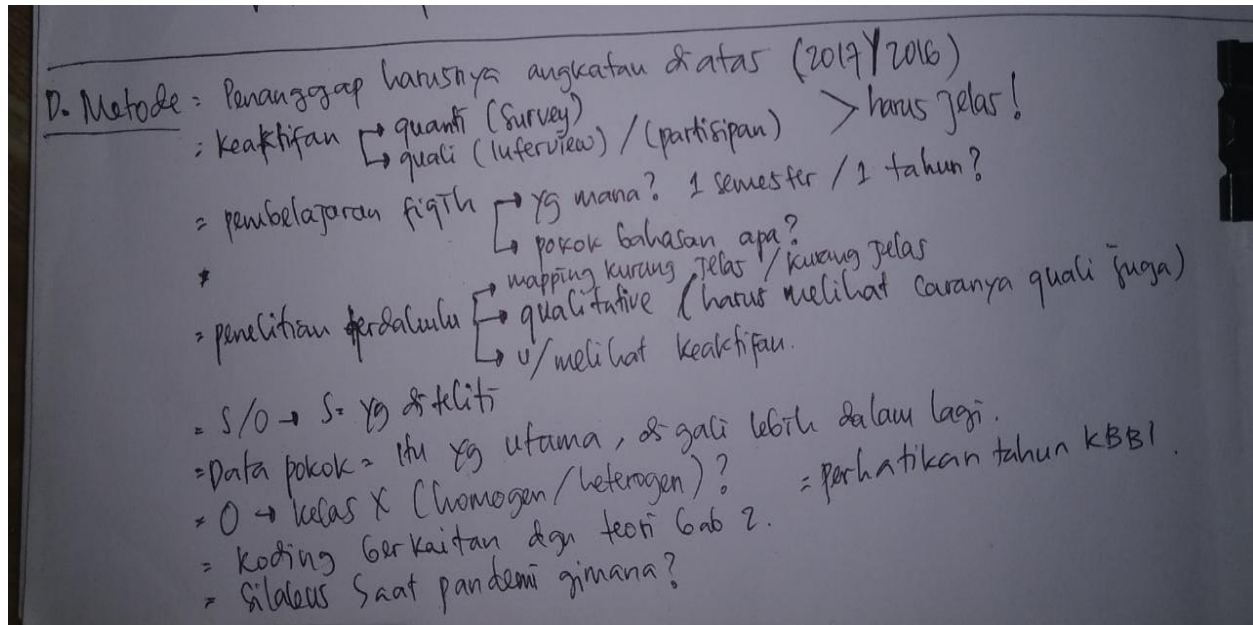 D. Metode : Penanggap harusnya angkatan di atas (2017 / 2016)
: keaktifan → quanti (Survey)
→ quali (interview) / (partisipan) > harus jelas!
= pembelajaran fiqih → yg mana? 1 semester / 1 tahun?
→ pokok bahasan apa?
*
→ mapping kurang jelas / kurang jelas
= penelitian terdahulu → qualitative (harus melihat caranya quali juga)
→ u/ melihat keaktifan.
= S/O → S = yg diteliti
= Data pokok = itu yg utama, di gali lebih dalam lagi.
= O → kelas X (homogen/heterogen)? = perhatikan tahun KBBI.
= Koding berkaitan dgn teori bab 2.
= Silabus Saat pandemi gimana?